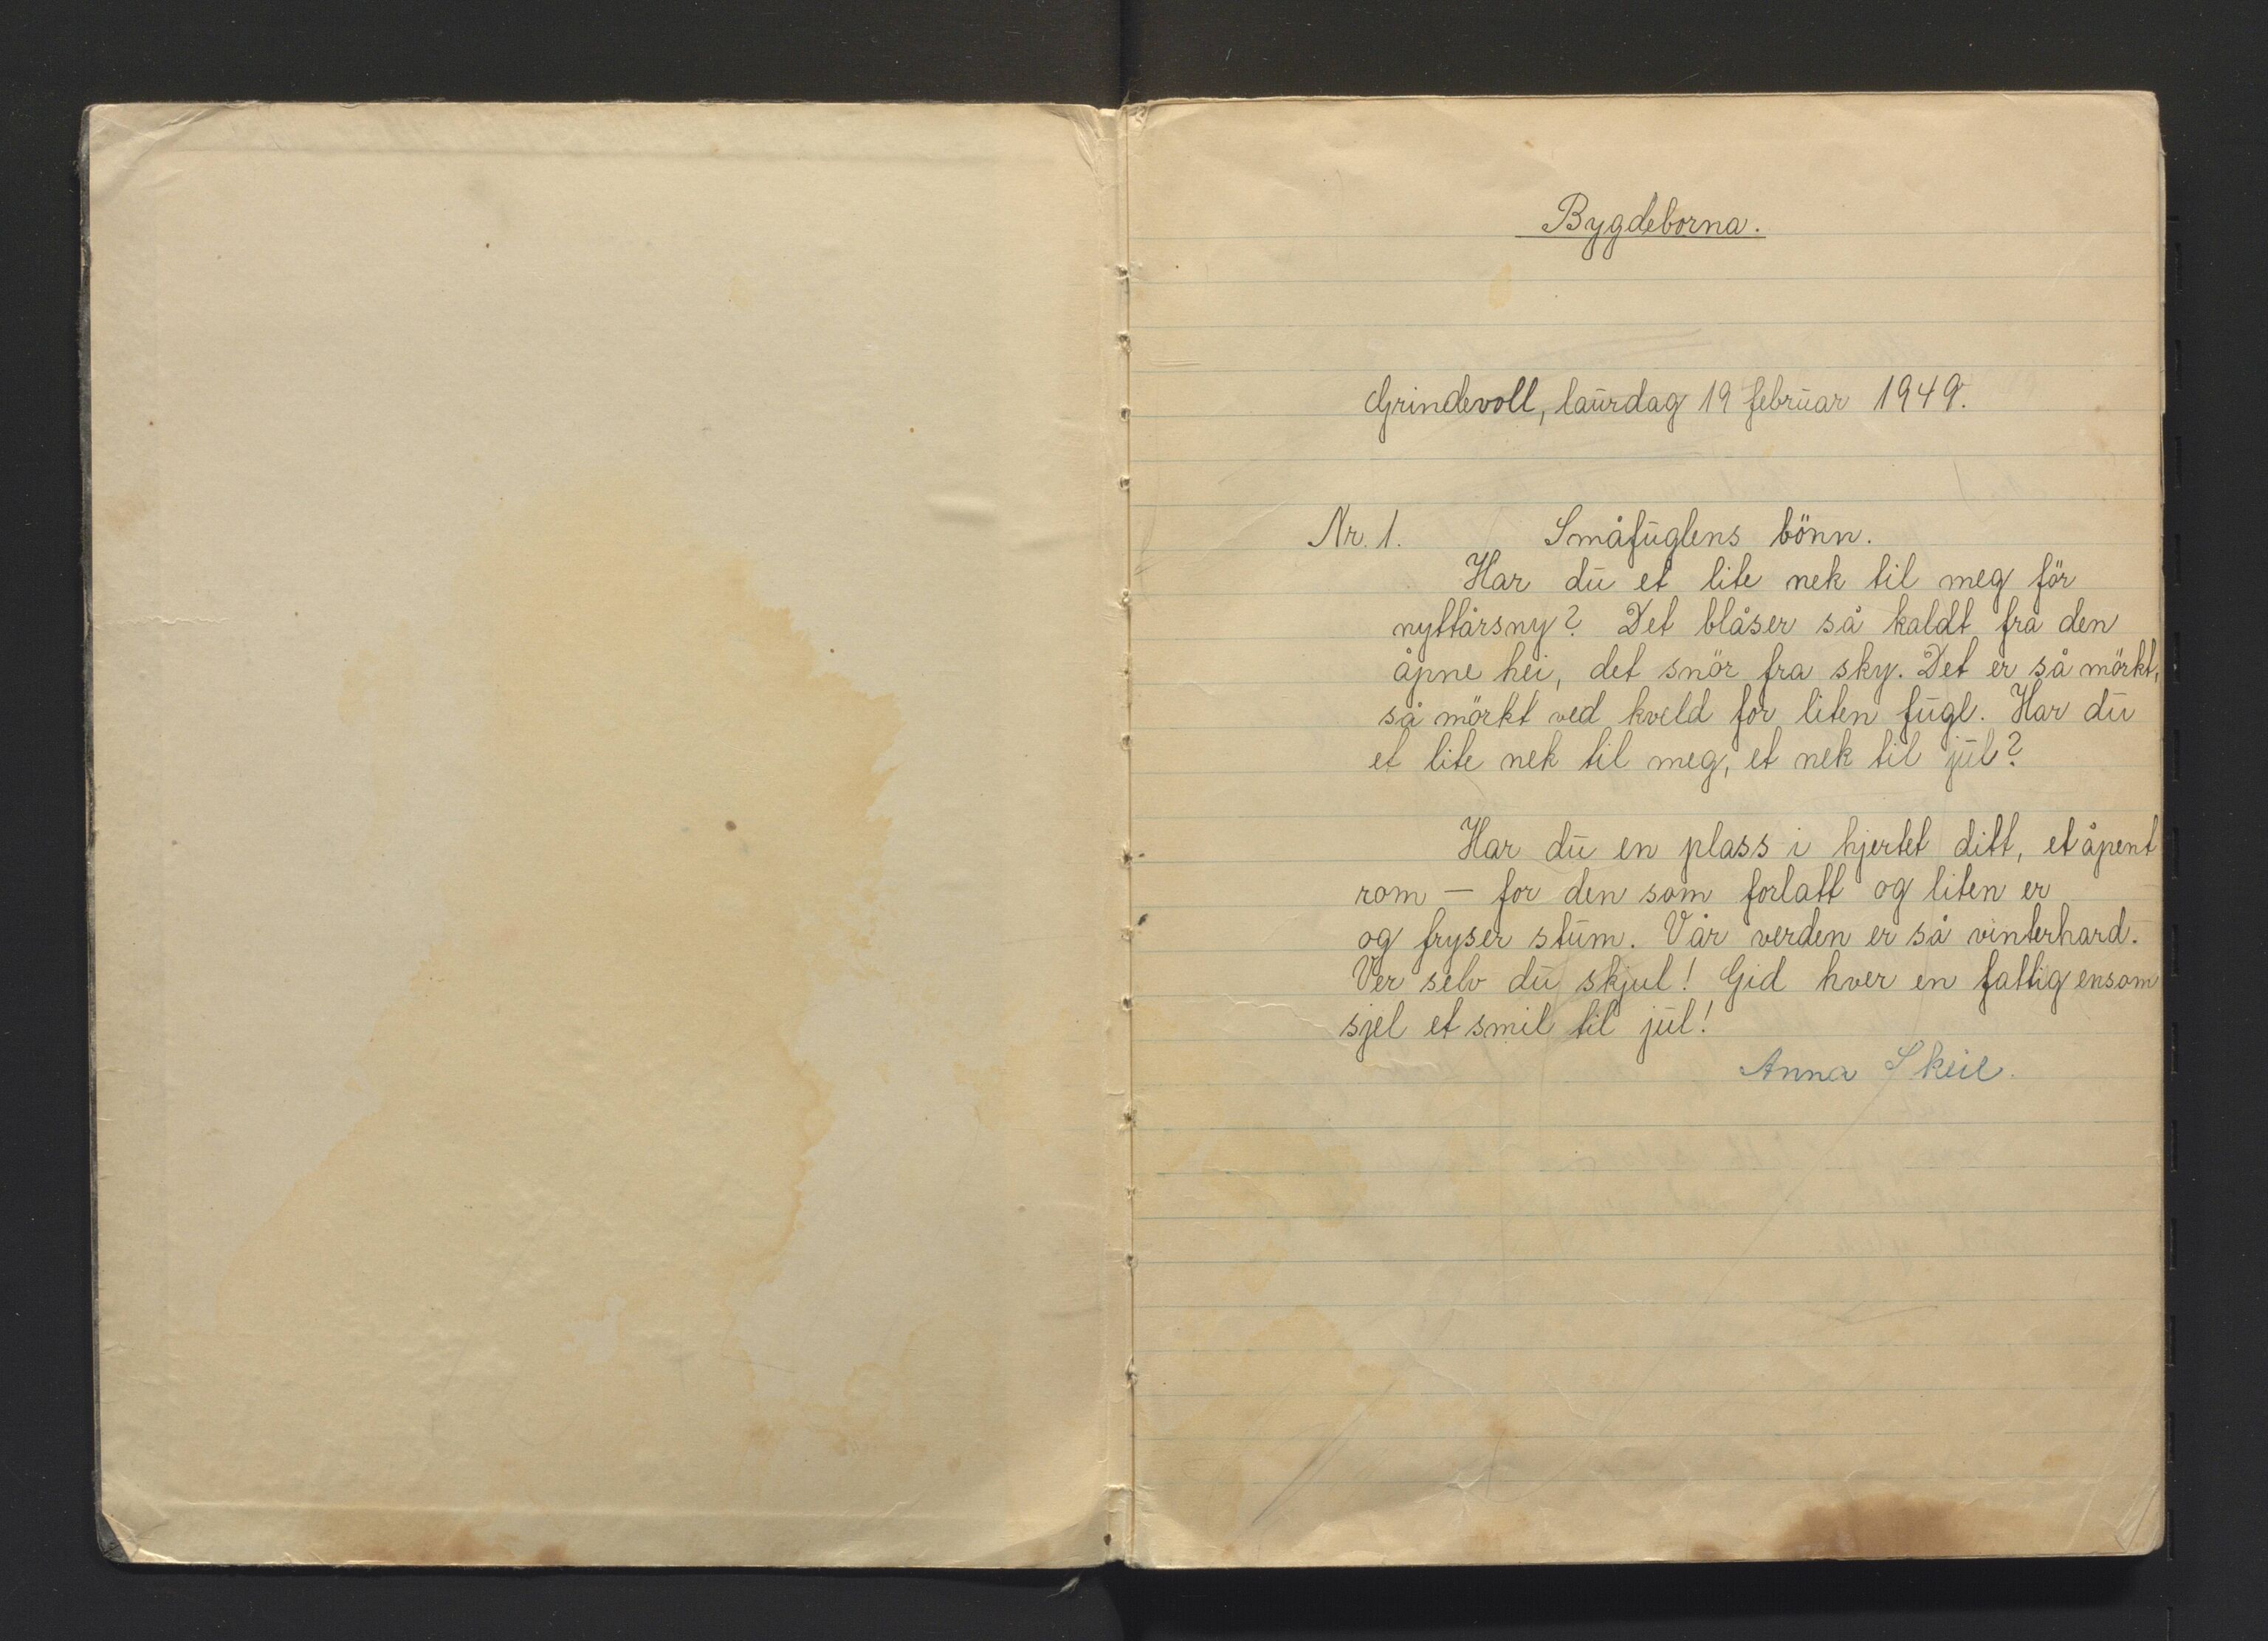 Bygdeborna.
Grindevoll, laurdag 19 februar 1949.
Nr. 1. Småfuglens bönn.
Har du et lite nek til meg för
nyttårsny? Det blåser så kaldt fra den
åpne hei, det snör fra sky. Det er så mörkt,
så mörkt ved kveld for liten fugl. Har du
et lite nek til meg, et nek til jul?
Har du en plass i hjertet ditt, et åpent
rom — for den som forlatt og liten er
og fryser stum. Vår verden er så vinterhard.
Ver selv du skjul! Gid hver en fattig ensom
sjel et smil til jul!
Anna Skeie.